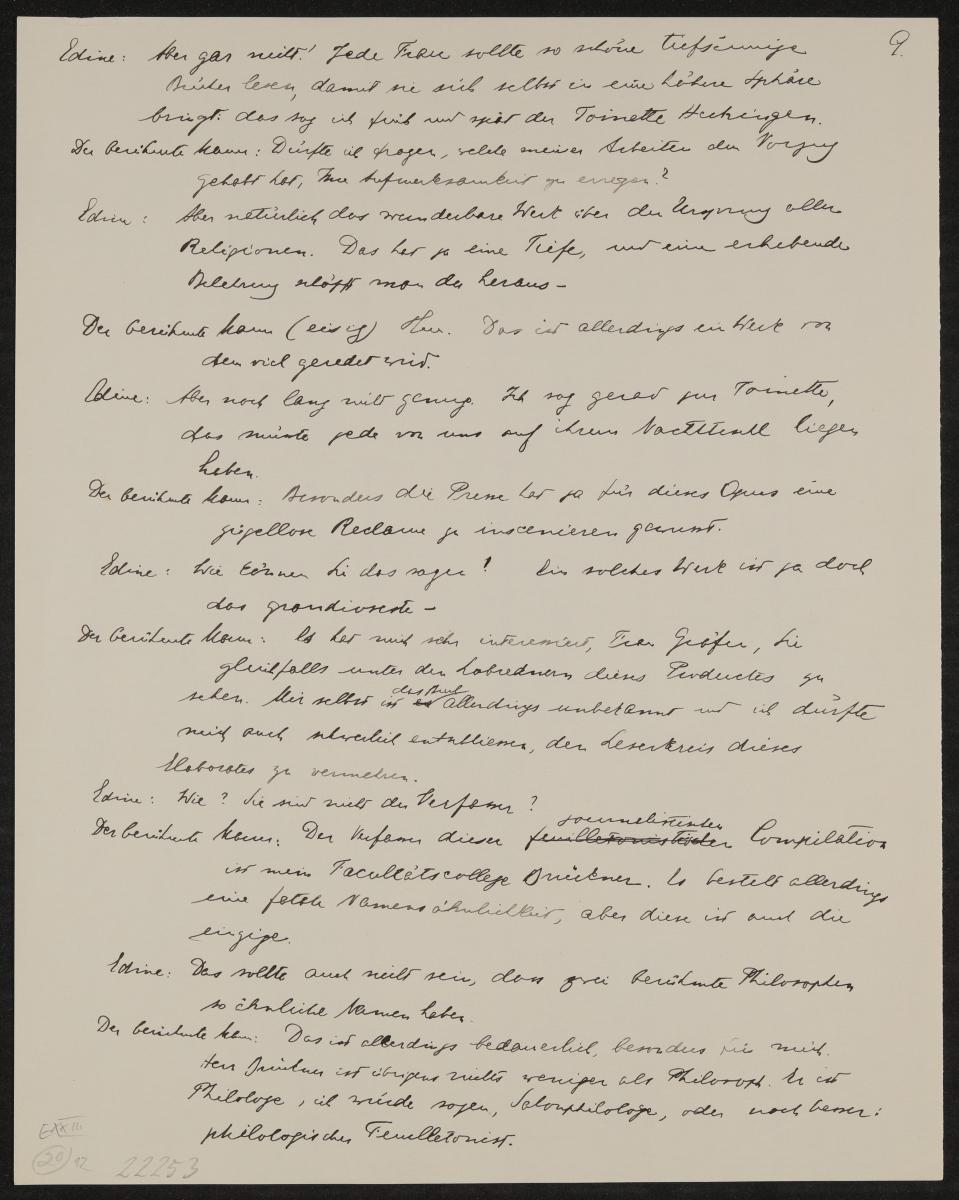 9.
Edine: Aber gar nicht! Jede Frau sollte so schöne tiefsinnige
Bücher lesen, damit sie sich selbst in eine höhere Sphäre
bringt. das sag ich früh und spät der Toinette Hechingen.
Der berühmte Mann: Dürfte ich fragen, welche meiner Arbeiten den Vorzug
gehabt hat, Ihre Aufmerksamkeit zu erregen?
Edine: Aber natürlich das wunderbare Werk über den Ursprung aller
Religionen. Das hat ja eine Tiefe, und eine erhebende
Belehrung schöpft man da heraus –
Der berühmte Mann (eisig) Hm. Das ist allerdings ein Werk von
dem viel geredet wird.
Edine: Aber noch lang nicht genug. Ich sag gerad zur Toinette,
das müsste jede von uns auf ihrem Nachttischl liegen
haben.
Der berühmte Mann: Besonders die Presse hat ja für dieses Opus eine
zügellose Reclame zu inscenieren gewusst.
Edine: Wie können Sie das sagen! Ein solches Werk ist ja doch
das grandioseste –
Der berühmte Mann: Es hat mich sehr interessiert, Frau Gräfin, Sie
gleichfalls unter den Lobrednern dieses Productes zu
sehen. Mir selbst ist es das Buch allerdings unbekannt und ich dürfte
mich auch schwerlich entschliessen, den Leserkreis dieses
Elaborates zu vermehren.
Edine: Wie? Sie sind nicht der Verfasser?
Der berühmte Mann: Der Verfasser dieser feuilletonistischen journalistischen Compilation
ist mein Facultätscollege Brückner. Es besteht allerdings
eine fatale Namensähnlichkeit, aber diese ist auch die
einzige.
Edine: Das sollte auch nicht sein, dass zwei berühmte Philosophen
so ähnliche Namen haben.
Der berühmte Mann: Das ist allerdings bedauerlich, besonders für mich.
Herr Brückner ist übrigens nichts weniger als Philosoph. Er ist
Philologe, ich würde sagen, Salonphilologe, oder noch besser:
philologischer Feuilletonist.
E XXIII
20 12
22253